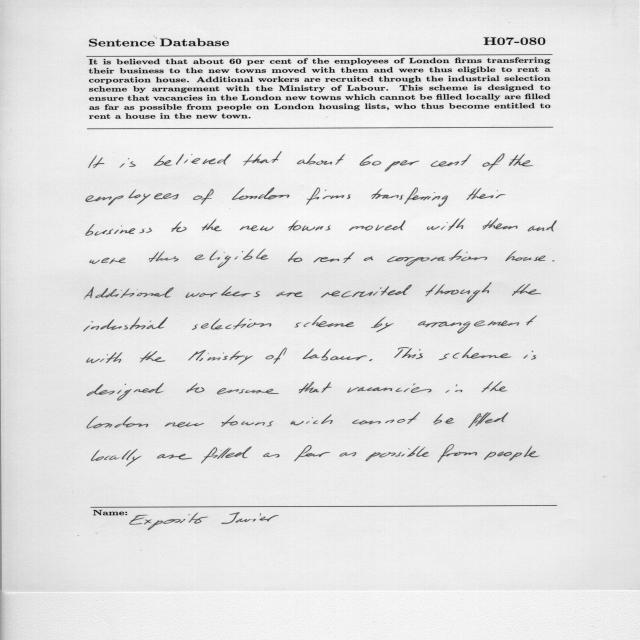 Sentence Database H07-080
It is believed that about 60 per cent of the employees of London firms transferring
their business to the new towns moved with them and were thus eligible to rent a
corporation house. Additional workers are recruited through the industrial selection
scheme by arrangement with the Ministry of Labour. This scheme is designed to
ensure that vacancies in the London new towns which cannot be filled locally are filled
as far as possible from people on London housing lists, who thus become entitled to
rent a house in the new town.
It is believed that about 60 per cent of the
employees of London firms transferring their
business to the new towns moved with them and
were thus eligible to rent a corporation house.
Additional workers are recruited through the
industrial selection scheme by arrangement
with the Ministry of Labour. This scheme is
designed to ensure that vacancies in the
London new towns wich cannot be filled
locally are filled as far as possible from people
Name: Exposito Javier